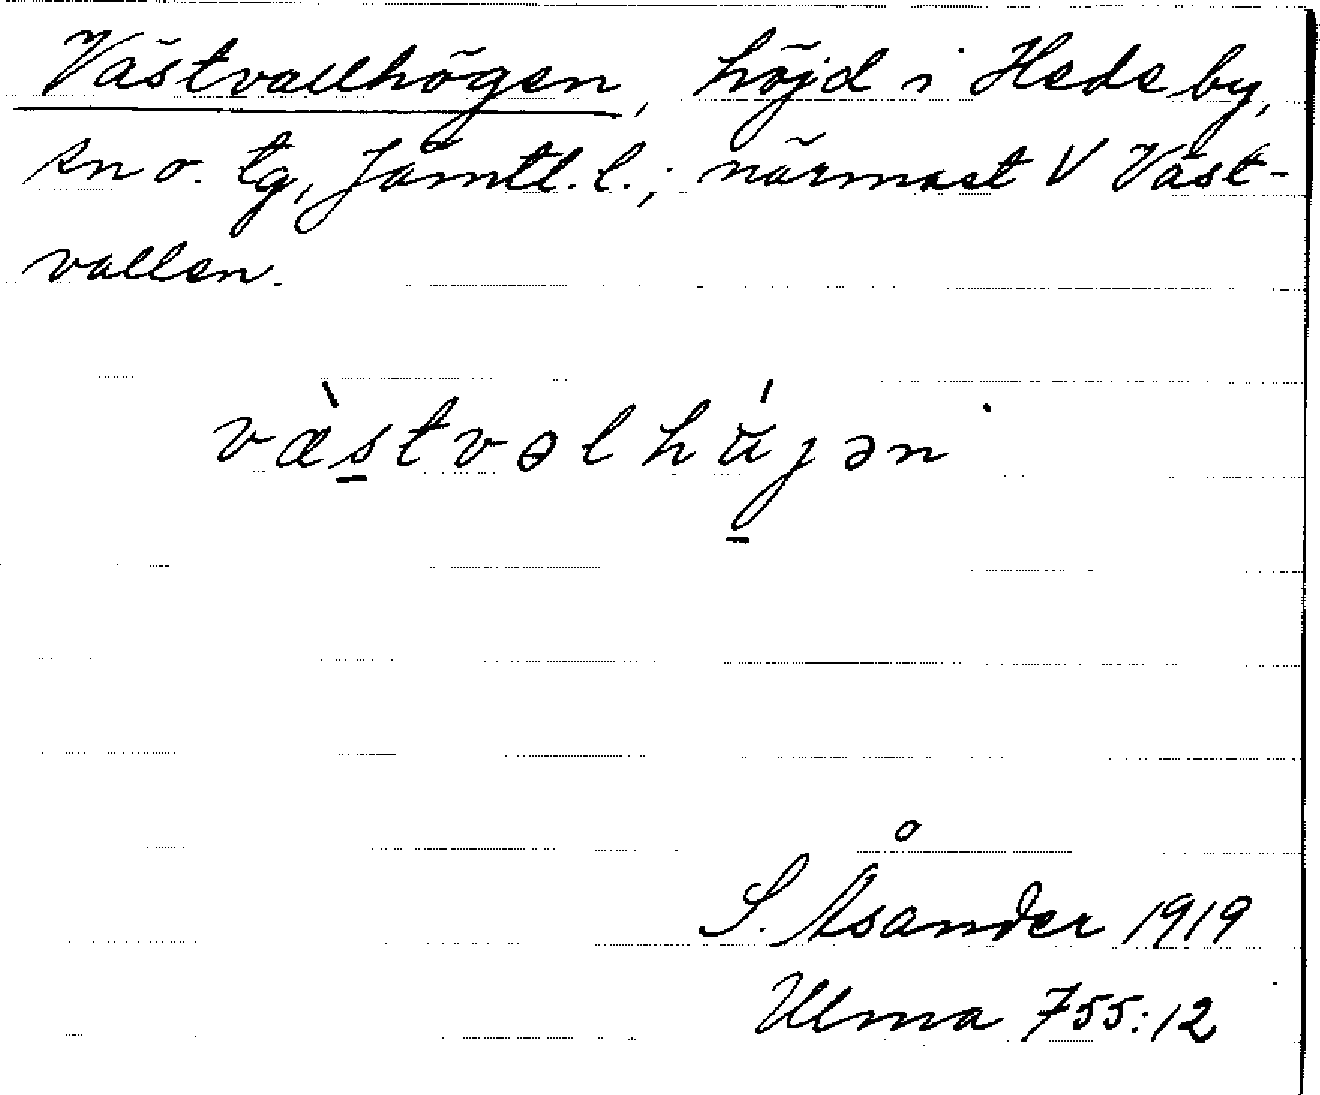 Västvallhögen, höjd i Hede by,
sn o. tg, Jämtl. l.; närmast V Väst-
vallen.
væ̀stvəlhújən
S. Åsander 1919
Ulma 755:12